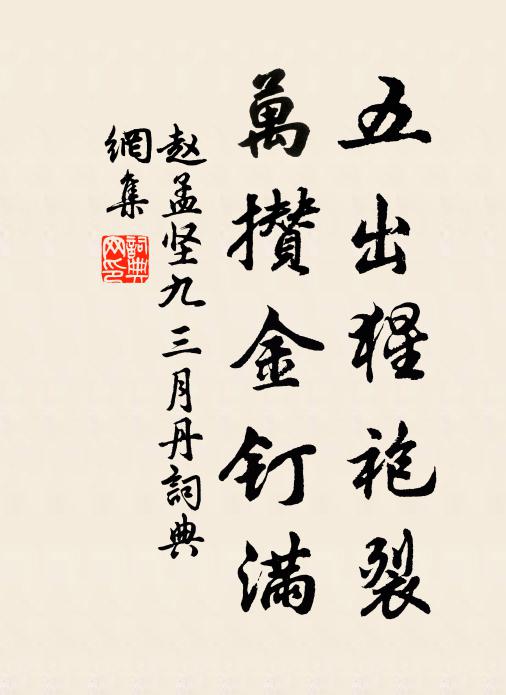 五出猩袍裂
萬攢金钉滿
赵孟坚九三月丹詞典
網集
詞典
网印